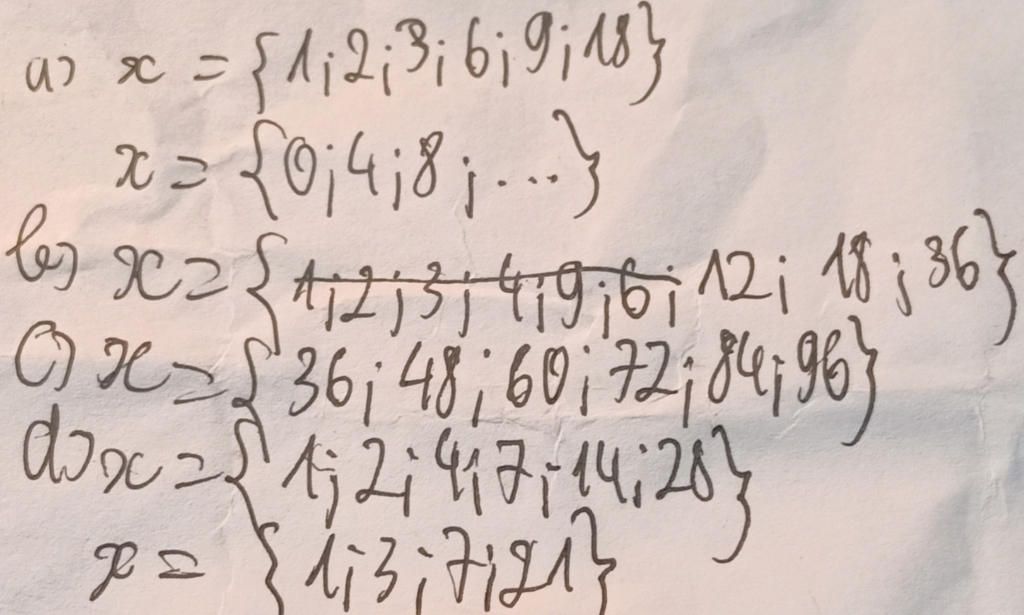 a) x = {1;2;3;6;9;18}
x = {0;4;8;...}
b) x = {1;2;3;4;9;6; 12; 18; 36}
c) x = {36;48;60;72;84;96}
d) x = {1;2;4;7;14;28}
x = {1;3;7;21}